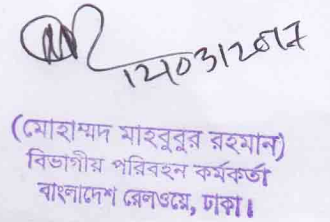 12/03/2017
(মোহাম্মদ মাহবুবুর রহমান)
বিভাগীয় পরিবহন কর্মকর্তা
বাংলাদেশ রেলওয়ে, ঢাকা।